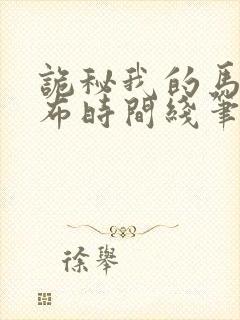 詭秘我的馬
布時間綫筆
徐舉